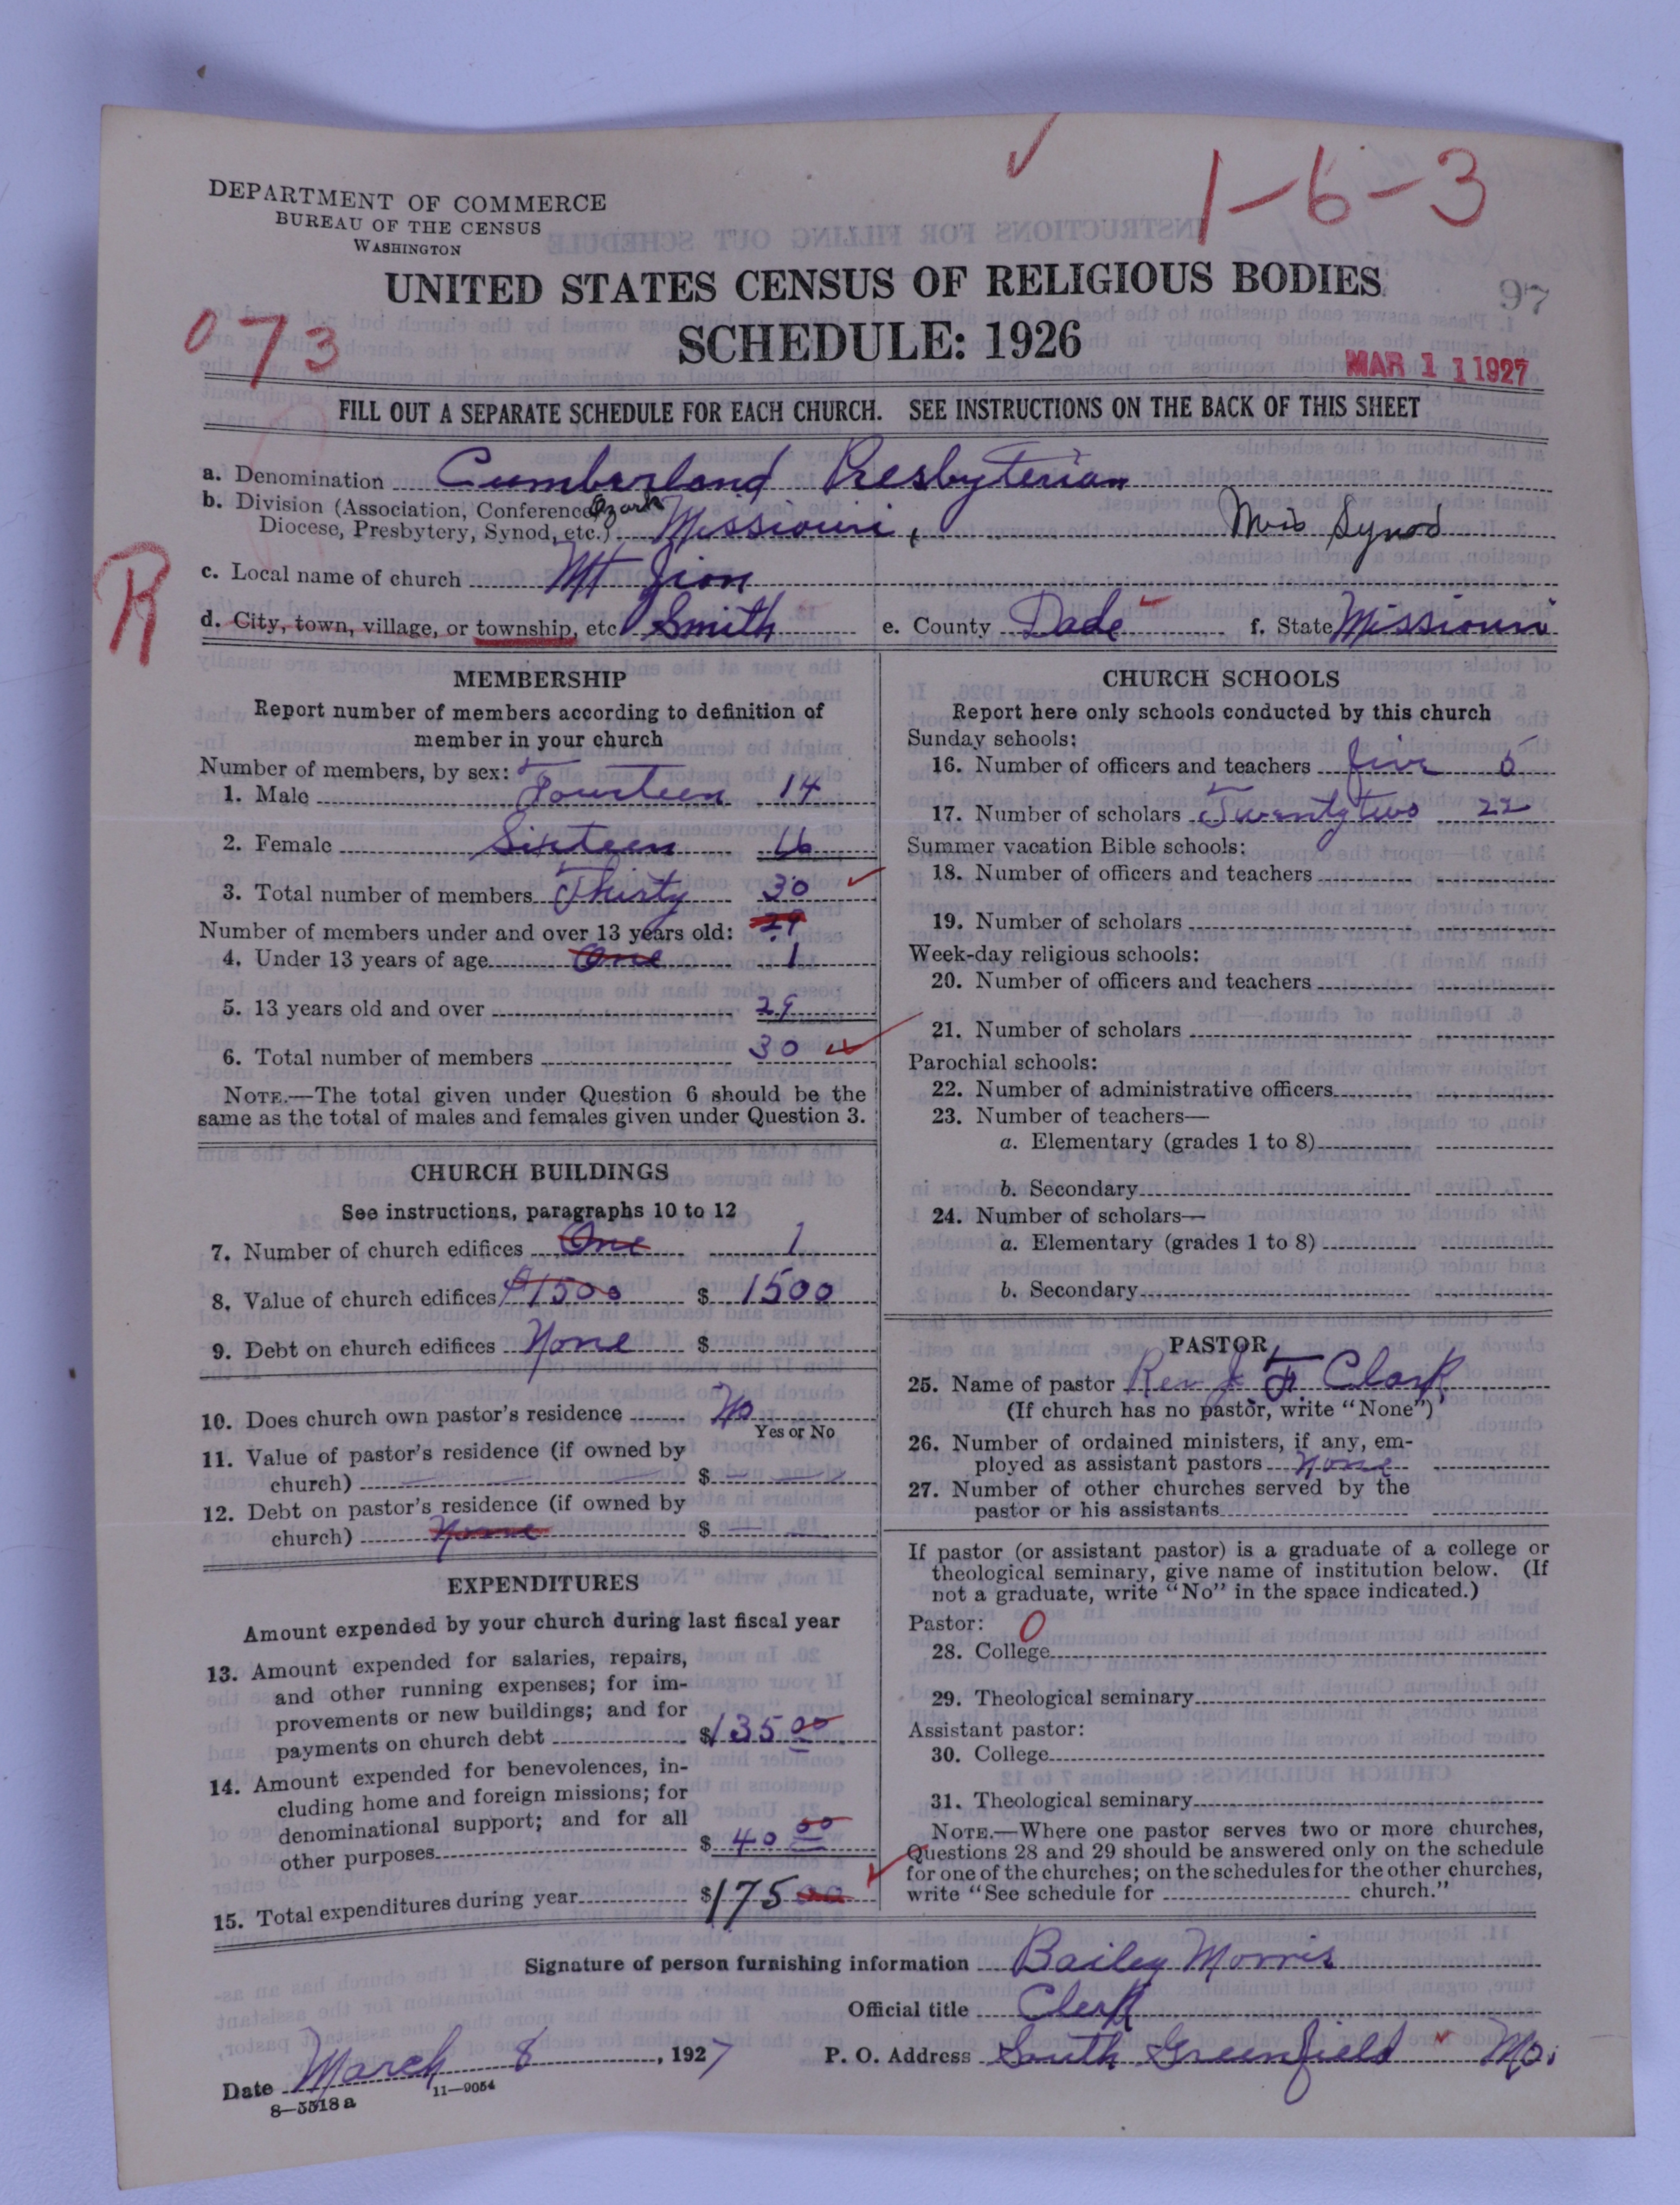 1-6-3
DEPARTMENT OF COMMERCE
BUREAU OF THE CENSUS
WASHINGTON
UNITED STATES CENSUS OF RELIGIOUS BODIES
97
073
SCHEDULE: 1926
MAR 11 1927
FILL OUT A SEPARATE SCHEDULE FOR EACH CHURCH. SEE INSTRUCTIONS ON THE BACK OF THIS SHEET
a. Denomination Cumberland Presbyterian
b. Division (Association, Conference, Ozark
Diocese, Presbytery, Synod, etc.) Missiouri, Mois Synod
R
c. Local name of church Mt Zion
d. City, town, village, or township, etc. Smith e. County Dade f. State Missiouri
MEMBERSHIP
Report number of members according to definition of
member in your church
Number of members, by sex:
1. Male Fourteen 14
2. Female Sixteen 16
3. Total number of members Thirty 30
Number of members under and over 13 years old: 29
4. Under 13 years of age One 1
5. 13 years old and over 29
6. Total number of members 30
NOTE.—The total given under Question 6 should be the
same as the total of males and females given under Question 3.
CHURCH BUILDINGS
See instructions, paragraphs 10 to 12
7. Number of church edifices One 1
8. Value of church edifices $1500 $ 1500
9. Debt on church edifices None $
10. Does church own pastor's residence No
Yes or No
11. Value of pastor's residence (if owned by
church) $
12. Debt on pastor's residence (if owned by
church) None $
EXPENDITURES
Amount expended by your church during last fiscal year
13. Amount expended for salaries, repairs,
and other running expenses; for im-
provements or new buildings; and for
payments on church debt $135 00
14. Amount expended for benevolences, in-
cluding home and foreign missions; for
denominational support; and for all
other purposes $ 40 00
15. Total expenditures during year $175 00
CHURCH SCHOOLS
Report here only schools conducted by this church
Sunday schools:
16. Number of officers and teachers five 5
17. Number of scholars Twenty two 22
Summer vacation Bible schools:
18. Number of officers and teachers
19. Number of scholars
Week-day religious schools:
20. Number of officers and teachers
21. Number of scholars
Parochial schools:
22. Number of administrative officers
23. Number of teachers—
a. Elementary (grades 1 to 8)
b. Secondary
24. Number of scholars—
a. Elementary (grades 1 to 8)
b. Secondary
PASTOR
25. Name of pastor Rev J. F. Clark
(If church has no pastor, write "None")
26. Number of ordained ministers, if any, em-
ployed as assistant pastors None
27. Number of other churches served by the
pastor or his assistants
If pastor (or assistant pastor) is a graduate of a college or
theological seminary, give name of institution below. (If
not a graduate, write "No" in the space indicated.)
Pastor: 0
28. College
29. Theological seminary
Assistant pastor:
30. College
31. Theological seminary
NOTE.—Where one pastor serves two or more churches,
Questions 28 and 29 should be answered only on the schedule
for one of the churches; on the schedules for the other churches,
write "See schedule for church."
Signature of person furnishing information Bailey Morris
Official title Clerk
Date March 8, 1927 P. O. Address South Greenfield Mo.
8—5518 a 11—9054